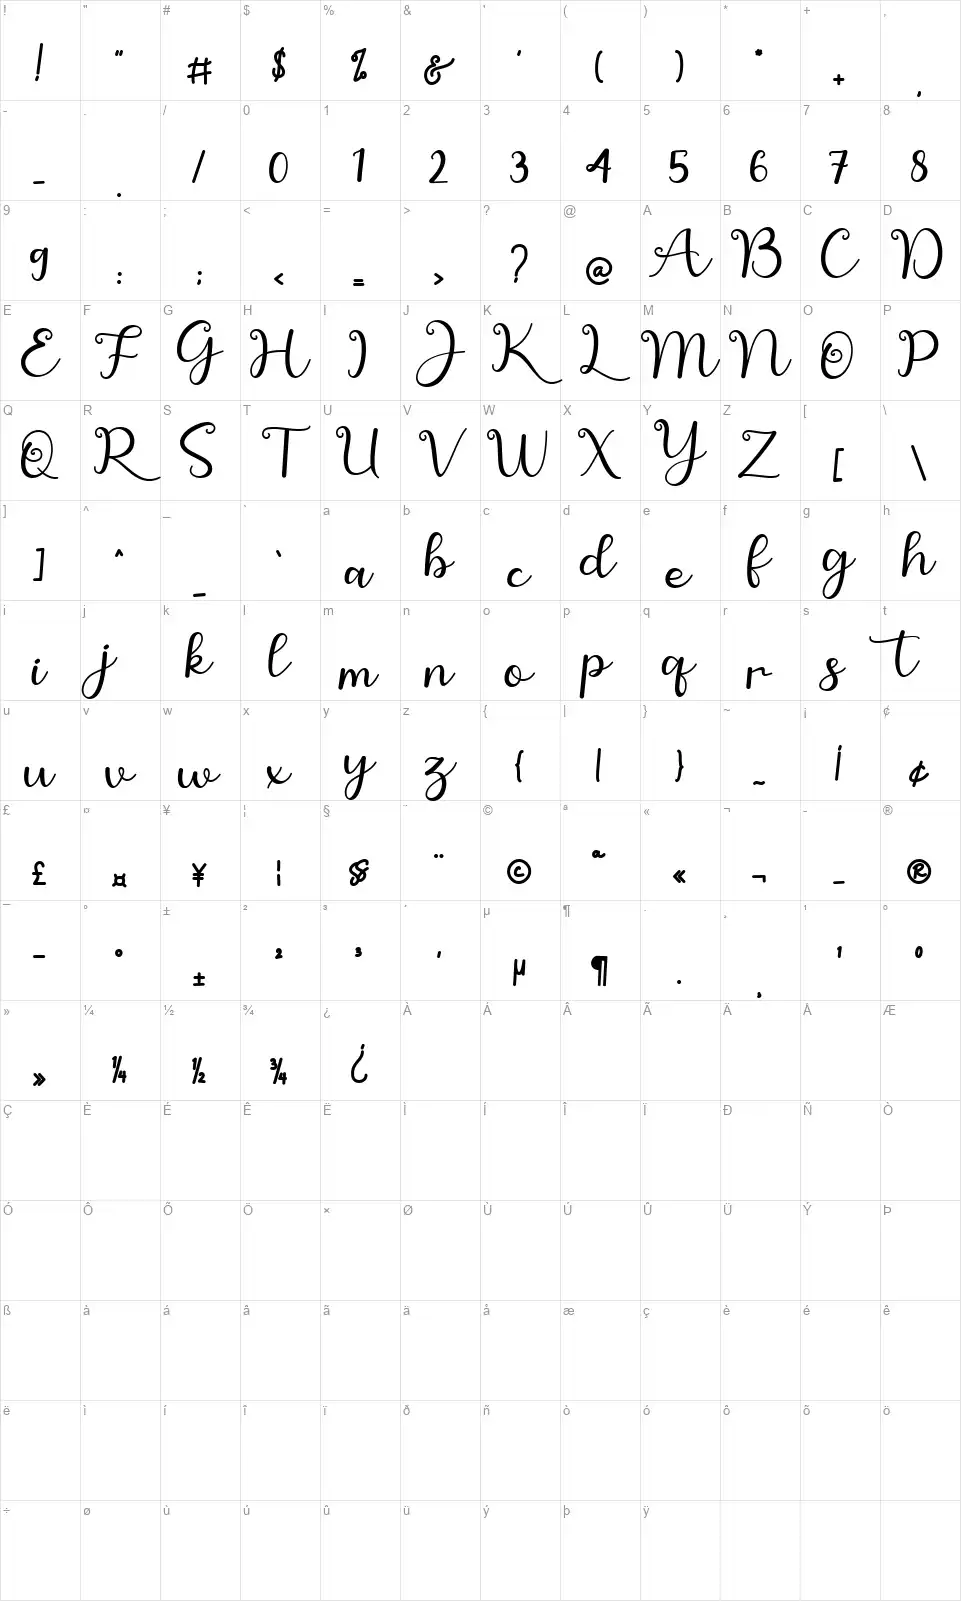 ! " # $ % & ' ( ) * + ,
! " # $ % & ' ( ) * + ,
- . / 0 1 2 3 4 5 6 7 8
- . / 0 1 2 3 4 5 6 7 8
9 : ; < = > ? @ A B C D
9 : ; < = > ? @ A B C D
E F G H I J K L M N O P
E F G H I J K L M N O P
Q R S T U V W X Y Z [ \
Q R S T U V W X Y Z [ \
] ^ _ ` a b c d e f g h
] ^ _ ` a b c d e f g h
i j k l m n o p q r s t
i j k l m n o p q r s t
u v w x y z { | } ~ ¡ ¢
u v w x y z { | } ~ ¡ ¢
£ ¤ ¥ ¦ § ¨ © ª « ¬ - ®
£ ¤ ¥ ¦ § ¨ © ª « ¬ - ®
¯ ° ± ² ³ ´ µ ¶ · ¸ ¹ º
¯ ° ± ² ³ ´ µ ¶ · ¸ ¹ º
» ¼ ½ ¾ ¿ À Á Â Ã Ä Å Æ
» ¼ ½ ¾ ¿
Ç È É Ê Ë Ì Í Î Ï Ð Ñ Ò
Ó Ô Õ Ö × Ø Ù Ú Û Ü Ý Þ
ß à á â ã ä å æ ç è é ê
ë ì í î ï ð ñ ò ó ô õ ö
÷ ø ù ú û ü ý þ ÿ